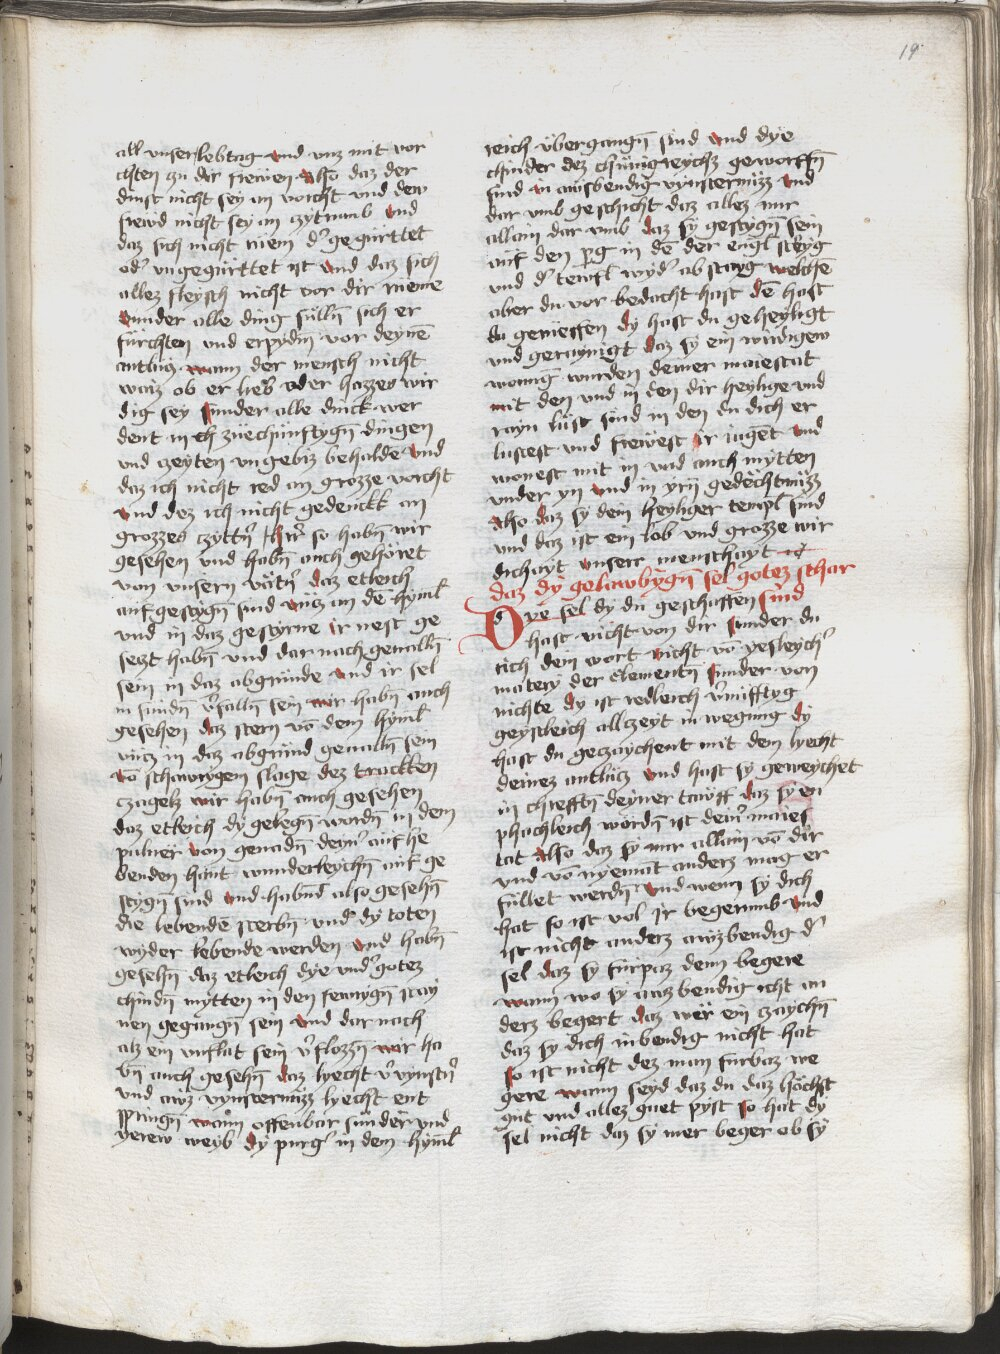 19
all vnser lebtag vnd vnz mit vor
chten zu dir frewen also daz der
dinst nicht sey an vorcht vnd dew
frewd nicht sey an czytrumb vnd
daz sich nicht ruem d' gegürttet
od' vngegürttet ist vnd daz sich
allez fleysch nicht vor dir rueme
sunder alle ding süllñ sich er
fürchten vnd erpydmñ vor deynē
antlüz wann der mensch nicht
waiz ob er lieb oder hazzes wir
dig sey sunder alle dinck wer
dent in züechünftygñ dingen
vnd czeyten vngebiz behaldē vnd
daz ich nicht red an grozze vorcht
vnd dez ich nicht gedenckk an
grozzes czyttñ h'r' so habñ wir
gesehen vnd habñ auch gehöret
von vnsern vätñ daz etleich
auf gestygñ sind vücz an dē hyml
vnd in daz gestyrne ir nest ge
seczt habñ vnd dar nach geualln
sein in daz abgründe vnd ir sel
in sündñ v'fallñ sein wir habñ auch
gesehen daz stern vō dem hyml
vücz in daz abgründ geualln sein
vō schawrygem slage dez trackken
czagelz wir habñ auch gesehen
daz etleich dy gelegñ wordñ in dem
palwer von genadñ deyn' auf he
benden hant wunderleychñ auf ge
stygñ sind vnd habnd also gesehñ
die lebendē sterbñ vnd dy toten
wyder lebende werden vnd habñ
gesehñ daz etleich dye vnd' gotez
chindñ mytten in den fewrygñ stay
nen gegangñ sein vnd dar nach
alz ein vnflat sein v'flozzñ wir ha
bñ auch gesehñ daz lyecht v'vynst'
vnd auz vynsternüzz lyecht ent
springñ wann offenbar sünder vnd
yerew weyb dy purg' in dem hyml
reich vbergangñ sind vnd dye
chinder dez chünigreychz geworffñ
sind in auzbendig vynsternüzz vnd
dar vmb geschicht daz allez nur
allain dar vmb daz sy gestygñ sein
auf den perg in dē der engl steyg
vnd d' teufl wyd' ab stayg welchē
aber du vor bedacht hast dē hast
du genieffen dy hast du geheyligt
vnd geraynigt daz sy ein wirdigew
wonūg wurden deiner maiestat
mit den vnd in den dir heylige vnd
rayn lüst sind in den du dich er
lustest vnd frewest ir iugēt vnd
wonest mit in vnd auch mytten
vnder yn vnd in yrñ gedëchtnüzz
also daz sy dein heyliger templ sind
vnd daz ist ein lob vnd grozze wir
dichayt vnserr menschayt
daz dy gelawbygñ sel gotez schar
sind
Dye sel dy du geschaffen
hast nicht von dir sunder du
rich dein wort nicht vō yesleych'
matery der elementñ sunder von
nichte dy ist redleich v'nüfftyg
geystleich allczeyt in wegung dy
hast du geczaychent mit dem lyecht
deinez antlücz vnd hast sy geweychet
in chrefftñ deyner tauff daz sy en
phachleich wordñ ist dein' maies
tat also daz sy nur allain vō dir
vnd vō nyemāt anderz mag er
füllet werdñ vnd wenn sy dich
hat so ist vol ir begerumb vnd
ist nicht anderz auzbendig d'
sel daz sy fürpaz denn begere
wann wo sy auzbendig icht an
derz begert daz wër ein czaychñ
daz sy dich inbendig nicht hat
so ist nicht dez man fürbaz we
gere wann seyd daz du daz höchst
gut vnd allez guet pyst so hat dy
sel nicht daz sy mer beger ob sy